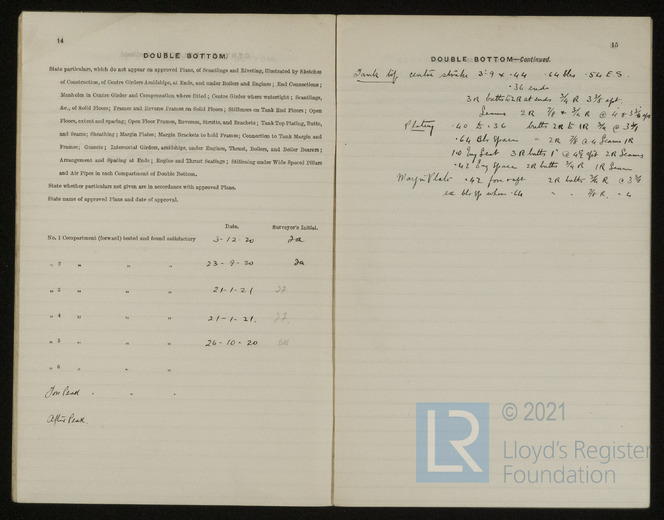 14
DOUBLE BOTTOM.
State particulars, which do not appear on approved Plans, of Scantlings and Riveting, illustrated by Sketches
of Construction, of Centre Girders Amidships, at Ends, and under Boilers and Engines; End Connections;
Manholes in Centre Girder and Compensation where fitted; Centre Girder where watertight; Scantlings,
&c., of Solid Floors; Frames and Reverse Frames on Solid Floors; Stiffeners on Tank End Floors; Open
Floors, extent and spacing; Open Floor Frames, Reverses, Struts, and Brackets; Tank Top Plating, Butts,
and Seams; Sheathing; Margin Plates; Margin Brackets to hold Frames; Connection to Tank Margin and
Frames; Gussets; Intercostal Girders, amidships, under Engines, Thrust, Boilers, and Boiler Bearers;
Arrangement and Spacing at Ends; Engine and Thrust Seatings; Stiffening under Wide Spaced Pillars
and Air Pipes in each Compartment of Double Bottom.
State whether particulars not given are in accordance with approved Plans.
State name of approved Plans and date of approval.
Date. Surveyor's Initial.
No. 1 Compartment (forward) tested and found satisfactory 3-12-20
„ 2 „ „ „ 23-9-20
„ 3 „ „ „ 21-1-21
„ 4 „ „ „ 21-1-21.
„ 5 „ „ „ 26-10-20
„ 6 „ „ „
Fore Peak „ „
After Peak.
15
DOUBLE BOTTOM—Continued.
Tank top centre strake 3'-9 x .44 .64 blrs .54 E.S.
.36 ends
3R butts to 2R at ends 3/4 R 3 3/8 apt.
Seams 2R 7/8 & 3/4 R @ 4 & 3 3/8 apt
Plating .40 to .36 butts 2R to 1R 3/4 @ 3 3/8
.64 Blr Space „ 2R 7/8 @ 4 Seams 1R
1.0 Eng Seat 3R butts 1" @ 4 1/2 apt 2R Seams
.42 Eng Space 2R butts 3/4 R 1R Seam
Margin Plate .42 fore & aft 2R butts 3/4 R @ 3 3/8
ex blr sp where .64 „ „ 7/8 R. „ 4
© 2021
LR
Lloyd's Register
Foundation